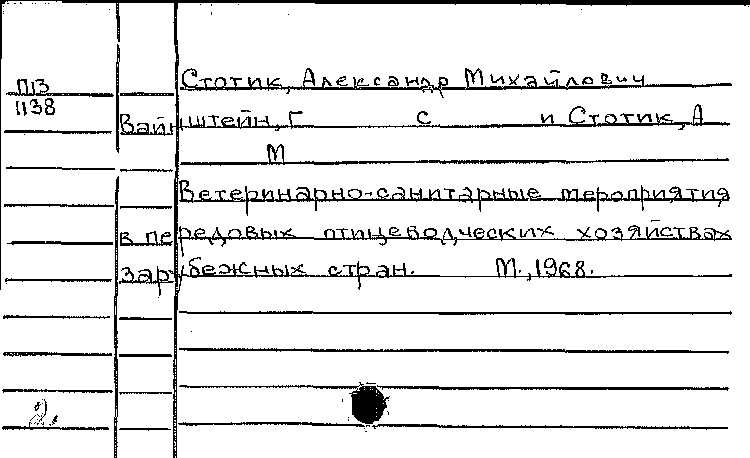 Стотик, Александр Михайлович
П13
1138
Вайнштейн, Г С и Стотик, А
М
Ветеринарно-санитарные мероприятия
в передовых птицеводческих хозяйствах
зарубежных стран. М., 1968.
2.